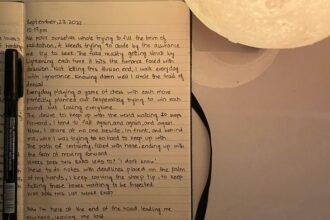 September, 23, 2022
10:19 pm
We pour ourselves whole trying to fill the brim of
it bleeds trying to abide by the
we try to seek. The fake reality getting struck by
lightening each time it hits the humans faced with
illusion. Not letting this illusion end, I walk everyday
with ignorance. Knowing damn well I chose the trail of
denial.
Everyday playing a game of chess with each move
perfectly planned out desperately trying to win each
round but losing everytime.
The desire to keep up with the world walking 20 ways
forward, I tend to fall again, and again, and again.
Now, I share of no one beside, in front, and behind
me, who I was trying so so hard to keep up with.
The path of certainty, faded with haze, ending abruptly with
the fear of moving forward.
Where does this road lead to? 'I don't know'
These to do notes with deadlines placed on the palm
of my hands, I keep carving the sharp tip, to keep
ticking those boxes waiting to be
Was does this list would end?
Now I'm here at the end of the road leading me
nowhere, leaving me lost